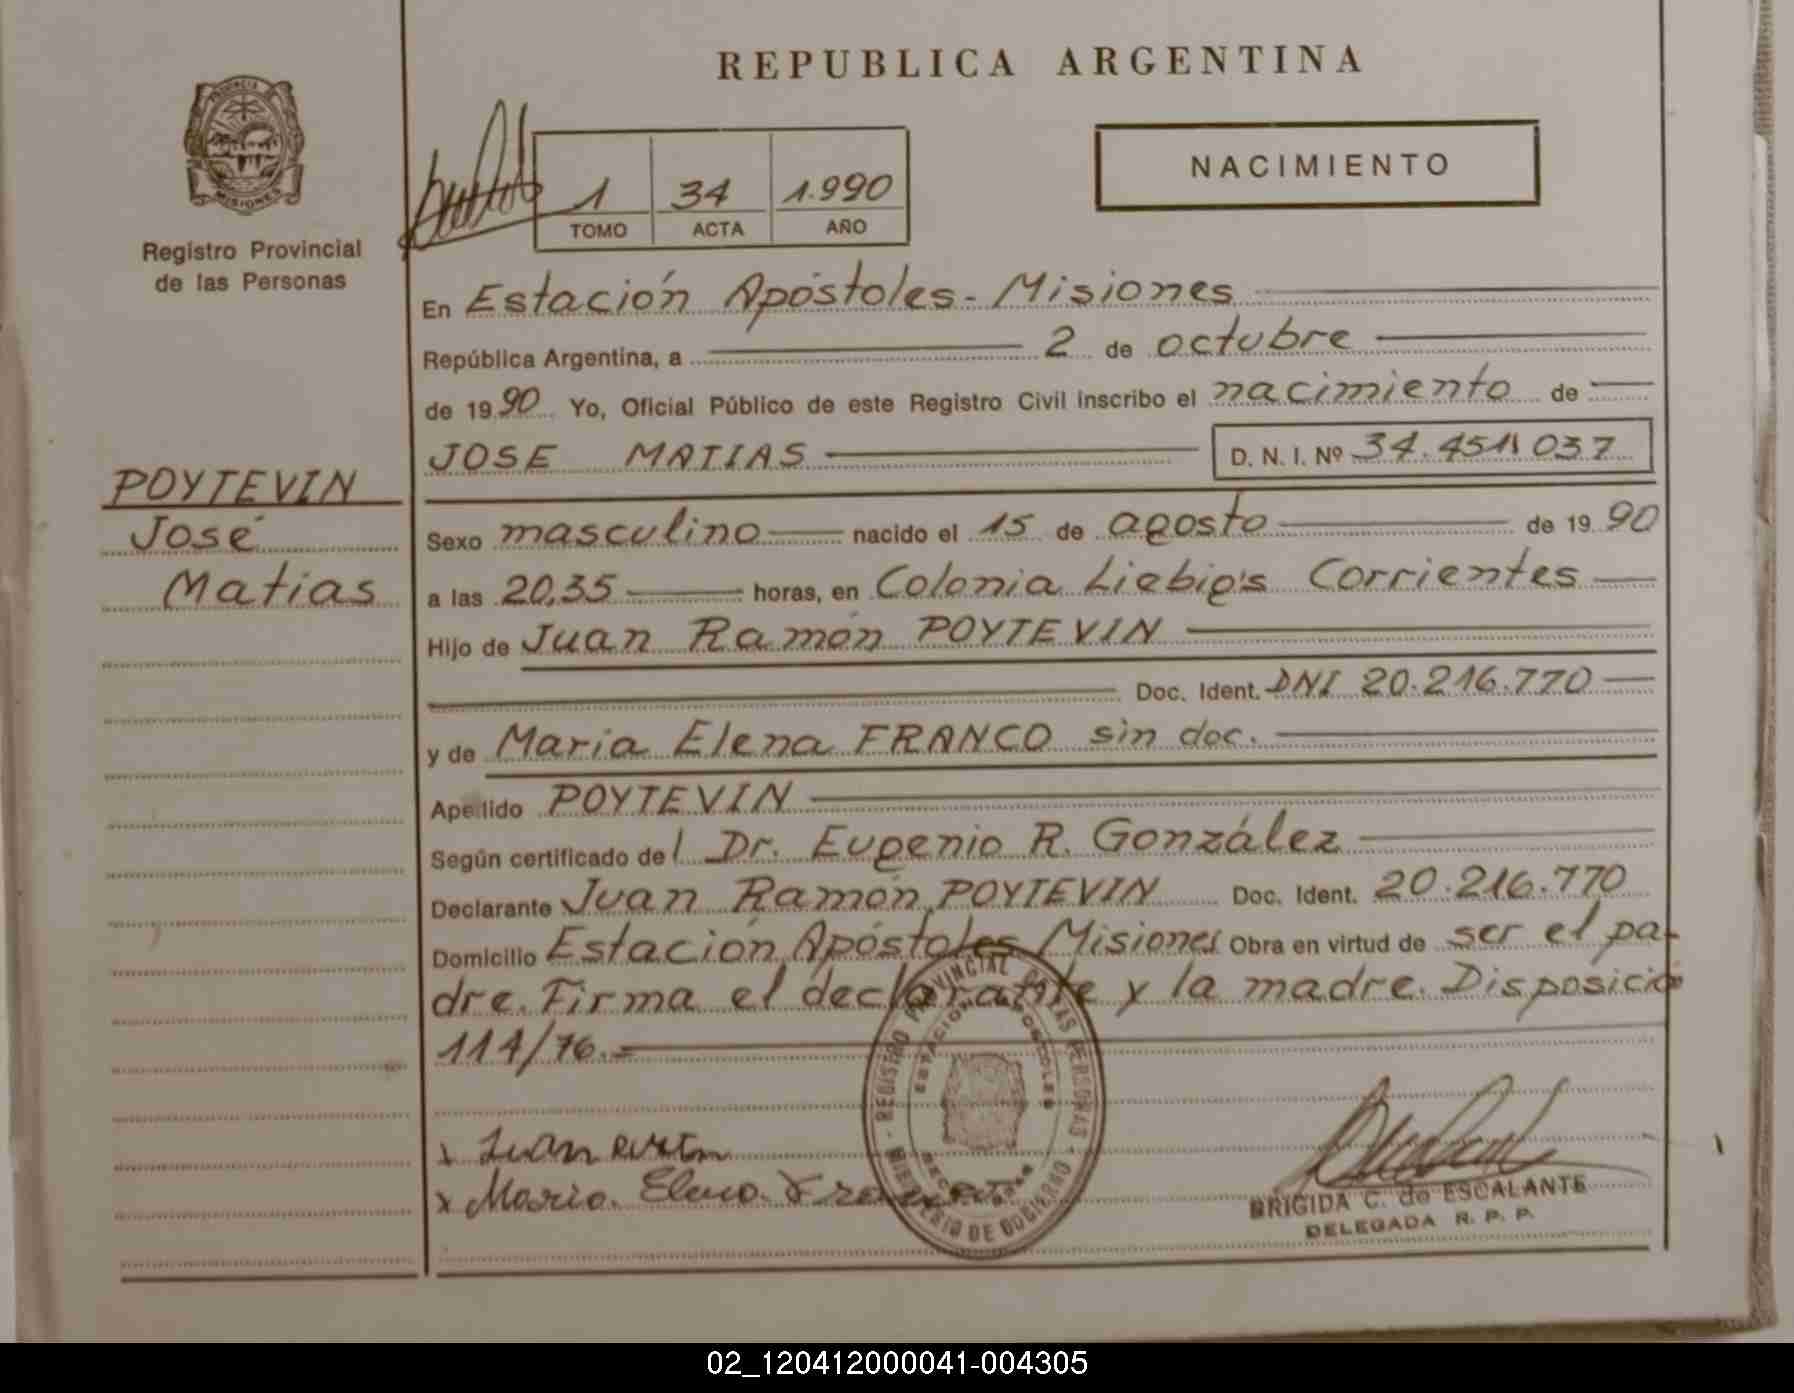 REPUBLICA ARGENTINA
PROVINCIA DE
MISIONES
Registro Provincial
de las Personas
1 34 1.990
TOMO ACTA AÑO
NACIMIENTO
En Estación Apóstoles - Misiones
República Argentina, a 2 de octubre
de 1990 Yo, Oficial Público de este Registro Civil inscribo el nacimiento de
JOSE MATIAS D. N. I. Nº 34.451.037
POYTEVIN
José
Matias
Sexo masculino nacido el 15 de agosto de 1990
a las 20,35 horas, en Colonia Liebig's Corrientes
Hijo de Juan Ramón POYTEVIN
Doc. Ident. DNI 20.216.770
y de Maria Elena FRANCO sin doc.
Apellido POYTEVIN
Según certificado del Dr. Eugenio R. González
Declarante Juan Ramón POYTEVIN Doc. Ident. 20.216.770
Domicilio Estación Apóstoles Misiones Obra en virtud de ser el pa-
dre. Firma el declarante y la madre. Disposició
114/76.=
REGISTRO PROVINCIAL DE LAS PERSONAS
ESTACION APOSTOLES
MINISTERIO DE GOBIERNO
x Juan
x Maria Elena Franco
BRIGIDA C. de ESCALANTE
DELEGADA R. P. P.
02_120412000041-004305